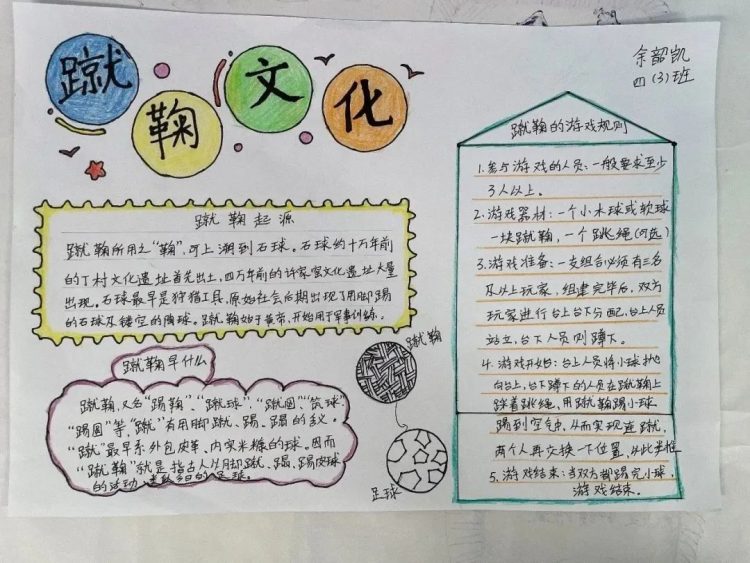 蹴鞠文化
余韶凯
四(3)班
蹴鞠起源
蹴鞠所用之“鞠”,可上溯到石球。石球约十万年前
的丁村文化遗址首先出土,四万年前的许家窑文化遗址大量
出现。石球最早是狩猎工具,原始社会后期出现了用脚踢
的石球及镂空的陶球。蹴鞠始于黄帝,开始用于军事训练。
蹴鞠早什么
蹴鞠,又名“踢鞠”、“蹴球”、“蹴圆”、“筑球”
“踢圆”等,“蹴”有用脚蹴、蹋、踢的含义,
“蹴”最早系外包皮革、内实米糠的球。因而
“蹴鞠”就是指古人以用脚蹴、蹋、踢皮球
的活动,类似今日的足球。
蹴鞠
足球
蹴鞠的游戏规则
1.参与游戏的人员:一般要求至少
3人以上。
2.游戏器材:一个小木球或软球
一块蹴鞠,一个跳绳(可选)
3.游戏准备:一支组合必须有三名
及以上玩家,组建完毕后,双方
玩家进行台上台下分配,台上人员
站立,台下人员则蹲下。
4.游戏开始:台上人员将小球
向台上,台下蹲下的人员在蹴鞠上
踩着跳绳,用蹴鞠踢小球
踢到空气中,从而实现连蹴,
两个人再交换一下位置,以此类推
5.游戏结束:当双方都踢完小球
游戏结束。